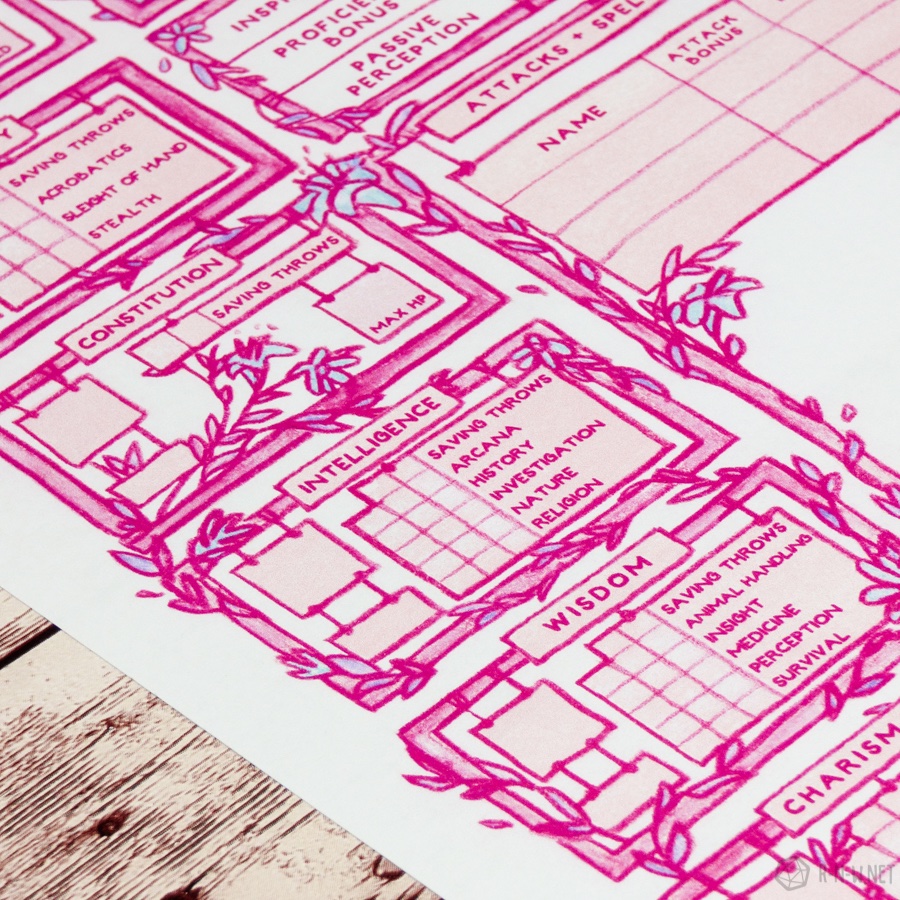 INSPI
PROFICIE
BONUS
PASSIVE
PERCEPTION
ATTACKS + SPEL
NAME
ATTACK
BONUS
Y
SAVING THROWS
ACROBATICS
SLEIGHT OF HAND
STEALTH
CONSTITUTION
SAVING THROWS
MAX HP
INTELLIGENCE
SAVING THROWS
ARCANA
HISTORY
INVESTIGATION
NATURE
RELIGION
WISDOM
SAVING THROWS
ANIMAL HANDLING
INSIGHT
MEDICINE
PERCEPTION
SURVIVAL
CHARISM
R-N-W.NET